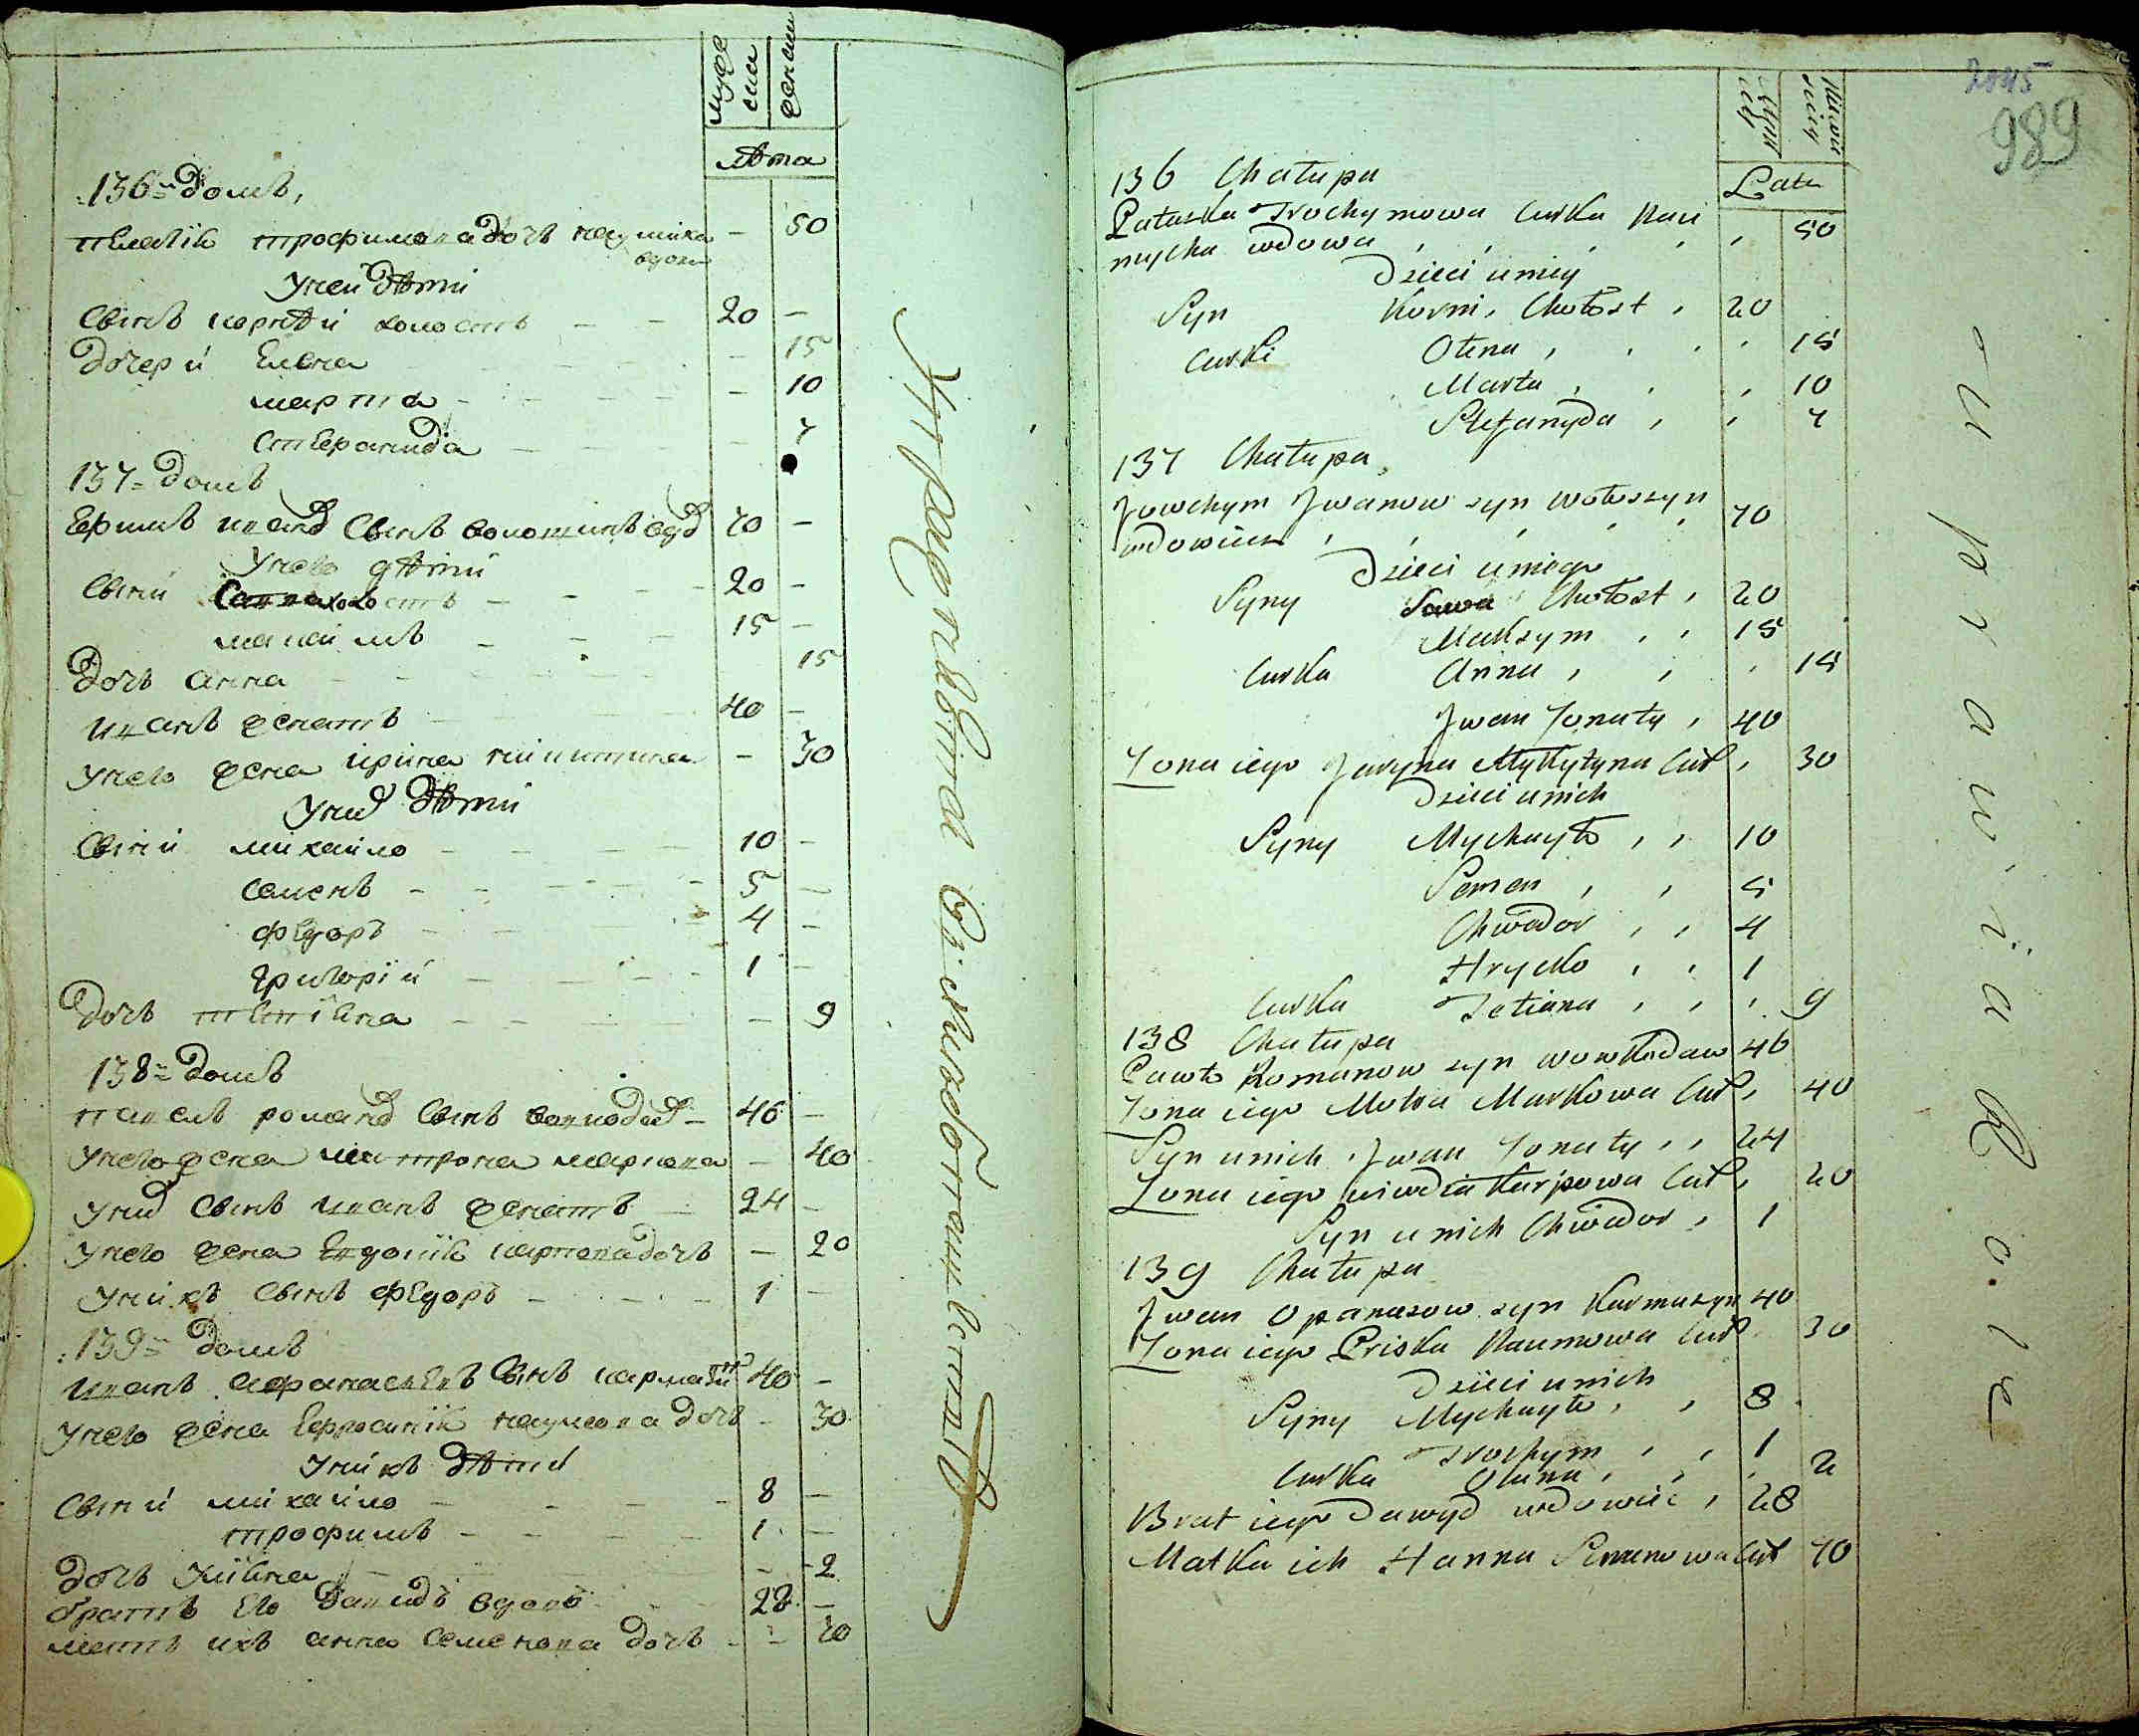 мужеска
женска
лѣта
136= домъ,
пелагія трофимова дочь наумиха - 50
вдова
У неи дѣти
Сынъ корнѣи холостъ - - 20 -
дочери Елена - 15
марта - - 10
Стефанида - - 7
137= домъ
Ефимъ иванов Сынъ волошинъ вдов 70 -
У него дѣти
Сыни Савва холостъ - - 20 -
маѯимъ - - 15 -
дочь анна 15
иванъ женатъ 40 -
У него жена ирина никитина - 30
У них дѣти
Сыни михаило - 10 -
Семенъ - - 5 -
федоръ - 4 -
григорій - 1 -
дочь татіяна - - 9
138= домъ
павелъ романов Сынъ вовкодав - 46 -
У него жена матрона маркова - 40
У них Сынъ иванъ женатъ 24 -
У него жена Евдокія карпова дочь - 20
У нихъ Сынъ федоръ - 1 -
139= домъ
иванъ афанасьевъ Сынъ кармазин 40 -
У него жена Ефросинія наумова дочь - 30
У нихъ дѣти
Сыни михаило - 8 -
трофимъ - - 1 -
дочь - 2
братъ его давидъ вдовъ 28 -
мать ихъ анна Семенова дочь - - 70
2045
989
Męż
czyzn
Niewia
sty
Lata
136 Chałupa
Pałaszka Trochymowa Curka Nau
mycha wdowa , , , , , 50
Dzieci u niey
Syn Korni, Chołost , 20
Curki Ołena , , , , 15
Marta , , , 10
Stefanyda , , 7
137 Chałupa
Jowchym Jwanow syn Wołoszyn
wdowiec , , , , , 70
Dzieci u niego
Syny Sawa Chołost , 20
Maksym , , 15
Curka Anna , , , 15
Jwan Żonaty , 40
Żona iego Jaryna Mykytyna Cur , 30
Dzieci u nich
Syny Mychayło , , 10
Semen , , 5
Chwedor , , 4
Hryćko , , 1
Curka Tetiana , , , 9
138 Chałupa
Pawło Romanow syn Wowkodaw 46
Żona iego Motra Markowa Cur , 40
Syn u nich Jwan Żonaty , , 24
Żona iego Karpowa Cur , 20
Syn u nich Chwedor , 1
139 Chałupa
Jwan Opanasow syn Karmazyn 40
Żona iego Priska Naumowa Cur 30
Dzieci u nich
Syny Mychayło , , 8
Trochym , , 1
Curka , , , 2
Brat iego Dawyd wdowiec , 28
Matka ich Hanna Semenowa Cur 70